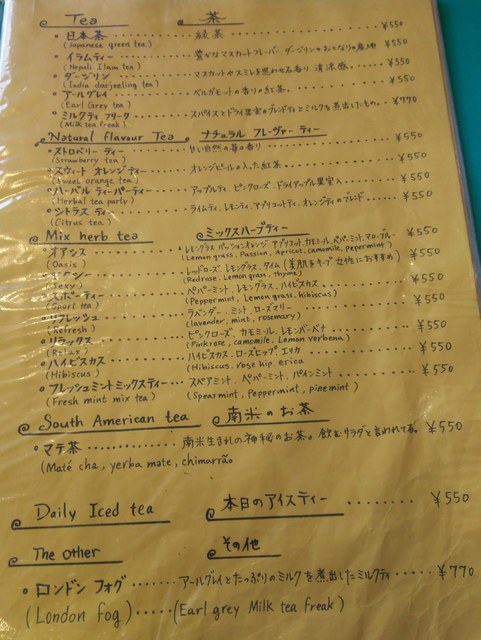 Tea 茶
日本茶 緑茶 ¥550
(Japanese green tea)
イラムティー 豊かなマスカットフレーバー ダージリンのおとなりの産地 ¥550
(Nepali Ilam tea)
ダージリン マスカットやスミレを思わせる香り 清涼感 ¥550
(India darjeeling tea)
アールグレイ ベルガモットの香りの紅茶。 ¥550
(Earl Grey tea)
ミルクティ フリーク スパイスとドライ果実のブレンドティとミルクを煮出したもの。 ¥770
(Milk tea freak)
Natural flavour Tea ナチュラル フレーヴァー ティー
ストロベリー ティー 甘い自然の苺の香り ¥550
(Strawberry tea)
スウィート オレンジティー オレンジピールの入った紅茶。 ¥550
(Sweet orange tea)
ハーバル ティーパーティー アップルティ、ピンクローズ、ドライアップル果実入 ¥550
(Herbal tea party)
シトラス ティ ライムティ、レモンティ、アプリコットティ、オレンジティのブレンド ¥550
(Citrus tea)
Mix herb tea ミックスハーブティー
オアシス レモングラス、パッションオレンジ アプリコット、カモミール、ペパーミント、マローブルー ¥550
(Oasis) (Lemon grass, Passion, Apricot, camomile, pepermint)
セクシー レッドローズ、レモングラス、タイム (美肌をキープ 女性におすすめ) ¥550
(Sexy) (Redrose, Lemon grass, thyme)
スポーティー ペパーミント、レモングラス、ハイビスカス ¥550
(Sport tea) (Peppermint, Lemon grass, hibiscus)
リフレッシュ ラベンダー、ミント、ローズマリー ¥550
(Refresh) (lavender, mint, rosemary)
リラックス ピンクローズ、カモミール、レモンバーベナ ¥550
(Relax) (Pinkrose, camomile, Lemon verbena)
ハイビスカス ハイビスカス、ローズヒップ エリカ ¥550
(Hibiscus) (Hibiscus, rose hip, erica
フレッシュミントミックスティー スペアミント、ペパーミント、パインミント ¥550
(Fresh mint mix tea) (Spearmint, Peppermint, pinemint)
South American tea 南米のお茶
マテ茶 南米生まれの神秘のお茶。飲むサラダと言われてる。¥550
(Maté cha, yerba mate, chimarrão)
Daily Iced tea 本日のアイスティー ¥550
The other その他
ロンドン フォグ アールグレイとたっぷりのミルクを煮出したミルクティ ¥770
(London Fog) (Earl grey Milk tea freak)